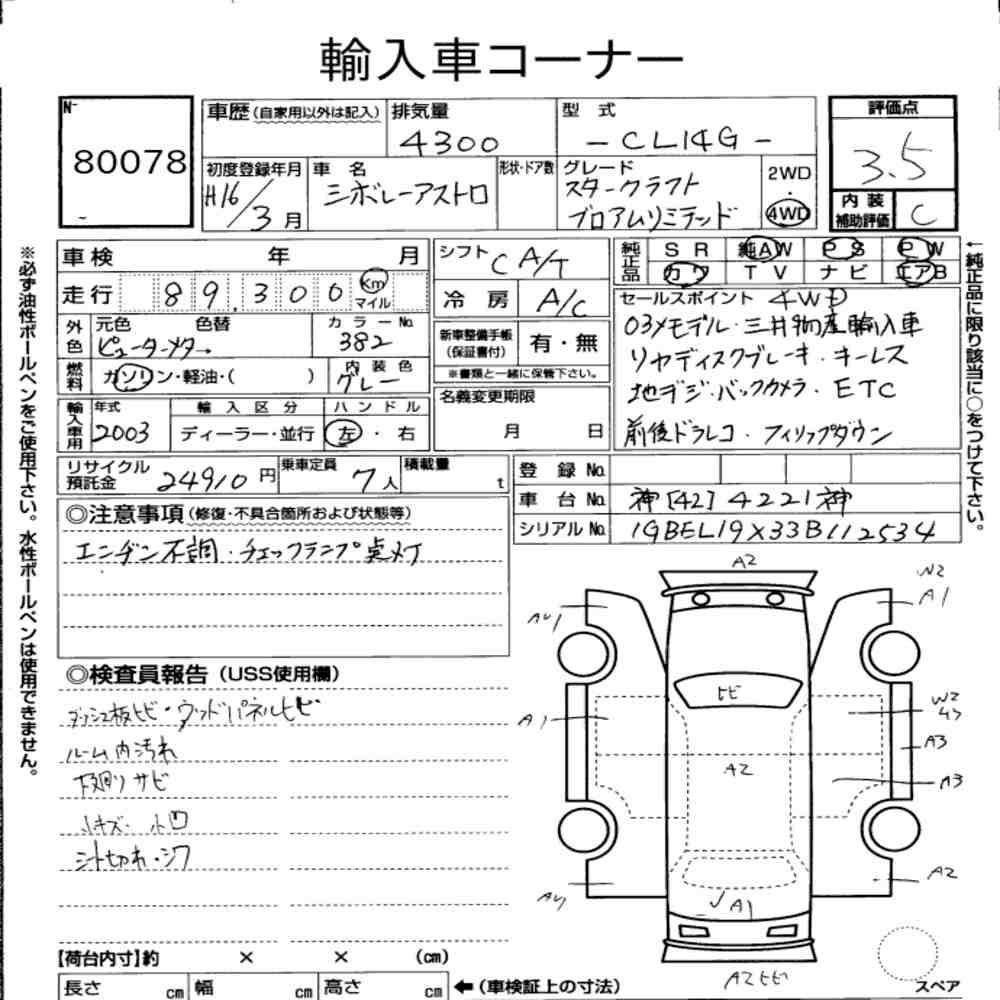 輸入車コーナー
No.
80078
車歴(自家用以外は記入)
排気量
4300
型式
-CL14G-
評価点
3.5
初度登録年月
H16/3月
車名
シボレーアストロ
形状・ドア数
グレード
スタークラフト
ブロアムリミテッド
2WD
・
4WD
内装
補助評価
C
車検 年 月
走行 89.300 Km マイル
シフト CA/T
冷房 A/C
純正品
SR 純AW PS PW
カワ TV ナビ エアB
外色
元色 色替
ピューターメター
カラーNo.
382
燃料
ガソリン・軽油・( )
内装色
グレー
新車整備手帳
(保証書付)
有・無
※書類と一緒に保管下さい。
セールスポイント 4WD
03メモデル・三井物産輸入車
リヤディスクブレーキ・キーレス
地デジ・バックカメラ・ETC
前後ドラレコ・フィリップダウン
輸入車用
年式
2003
輸入区分
ディーラー・並行
ハンドル
左・右
名義変更期限
月 日
リサイクル預託金 24910円
乗車定員 7人
積載量 t
登録No.
車台No. 神[42]4221神
シリアルNo. 1GBEL19X33B112534
◎注意事項(修復・不具合箇所および状態等)
エンヂン不調・チェックランプ点灯
◎検査員報告(USS使用欄)
ダッシュ板ヒビ・ウッドパネルヒビ
ルーム内汚れ
下廻りサビ
小キズ・小凹
シート切れ・シワ
【荷台内寸】約 × × (cm)
長さ cm 幅 cm 高さ cm
←(車検証上の寸法)
※必ず油性ボールペンをご使用下さい。水性ボールペンは使用できません。
←純正品に限り該当に○をつけて下さい。
A2
W2
A1
AU1
ヒビ
A1
W2
U3
A3
A2
A3
A2
AU1
A1
A2ヒビ
スペア